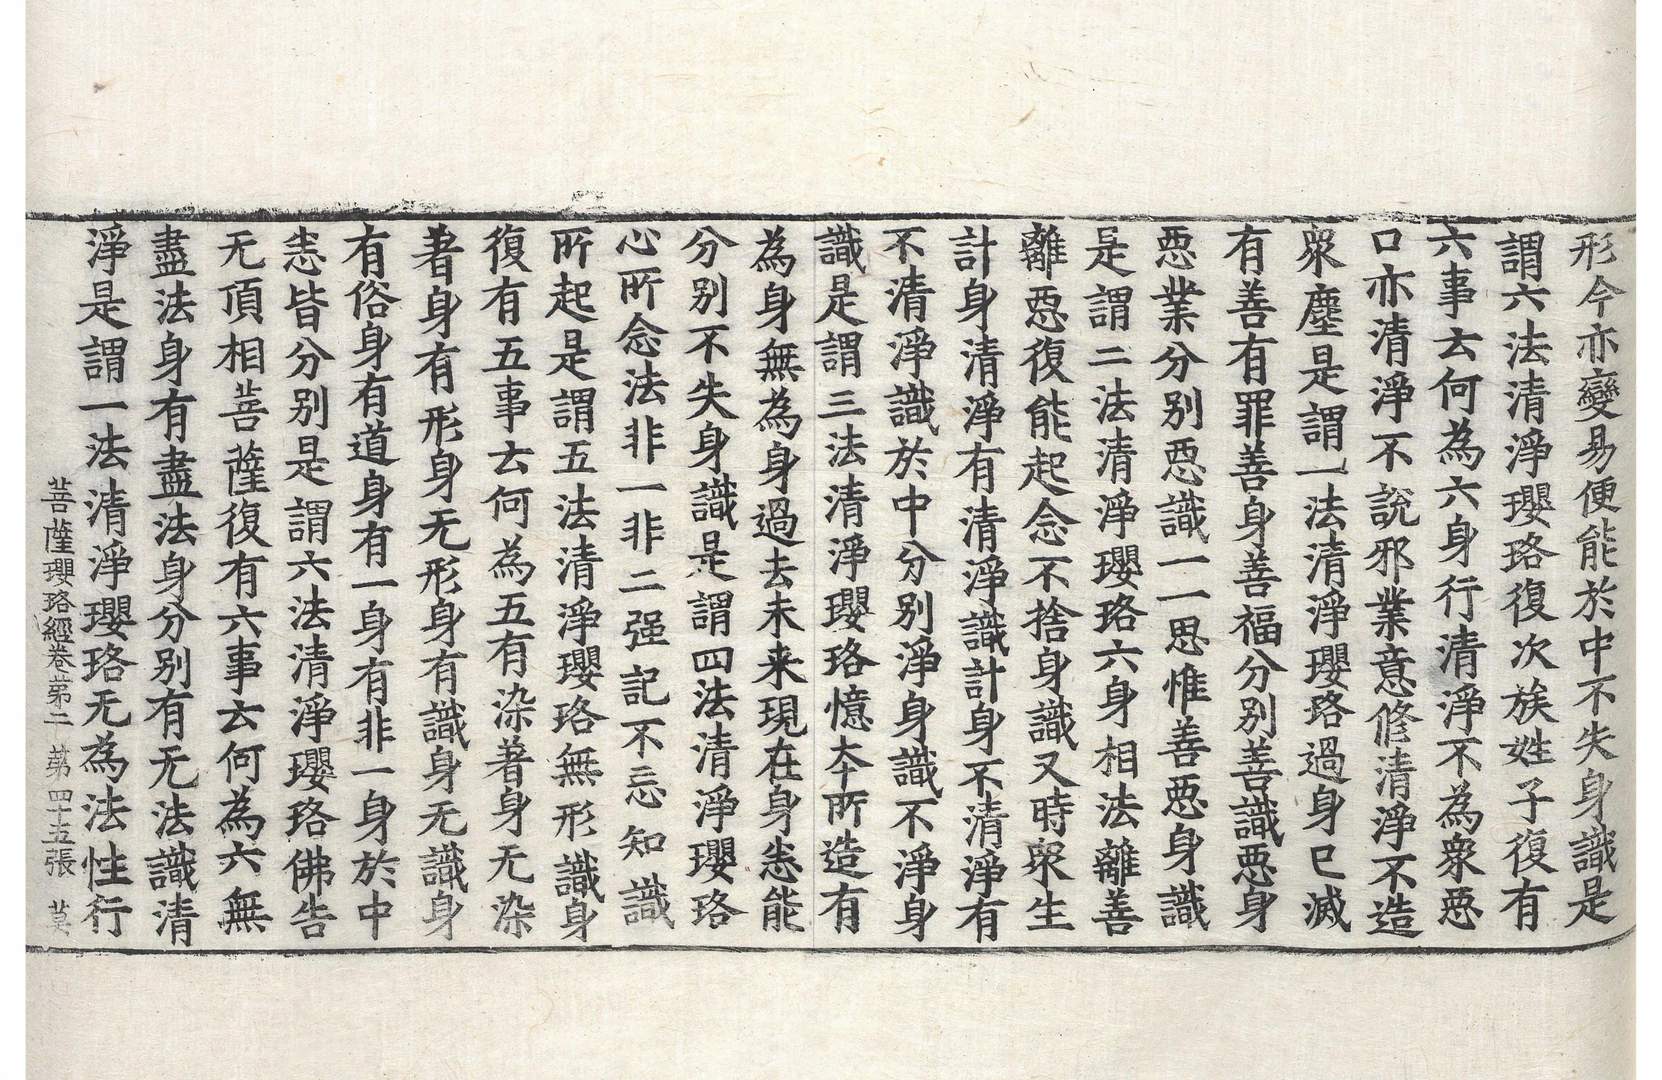 形今亦變易便能於中不失身識是
謂六法清淨瓔珞復次族姓子復有
六事云何為六身行清淨不為衆惡
口亦清淨不說邪業意修清淨不造
衆塵是謂一法清淨瓔珞過身已滅
有善有罪善身善福分別善識惡身
惡業分別惡識一一思惟善惡身識
是謂二法清淨瓔珞六身相法離善
離惡復能起念不捨身識又時衆生
計身清淨有清淨識計身不清淨有
不清淨識於中分別淨身識不淨身
識是謂三法清淨瓔珞憶本所造有
為身無為身過去未来現在身悉能
分別不失身識是謂四法清淨瓔珞
心所念法非一非二强記不忘知識
所起是謂五法清淨瓔珞無形識身
復有五事云何為五有染著身无染
著身有形身无形身有識身无識身
有俗身有道身有一身有非一身於中
悉皆分別是謂六法清淨瓔珞佛告
无頂相菩薩復有六事云何為六無
盡法身有盡法身分別有无法識清
淨是謂一法清淨瓔珞无為法性行
菩薩瓔珞經卷第二 第四十五張 莫